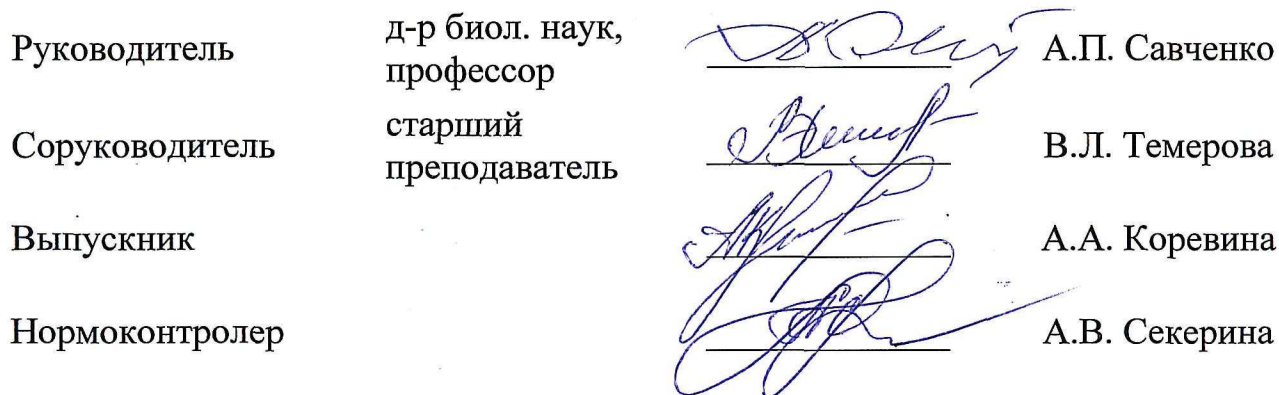 Руководитель д-р биол. наук, профессор А.П. Савченко
Соруководитель старший преподаватель В.Л. Темерова
Выпускник А.А. Коревина
Нормоконтролер А.В. Секерина